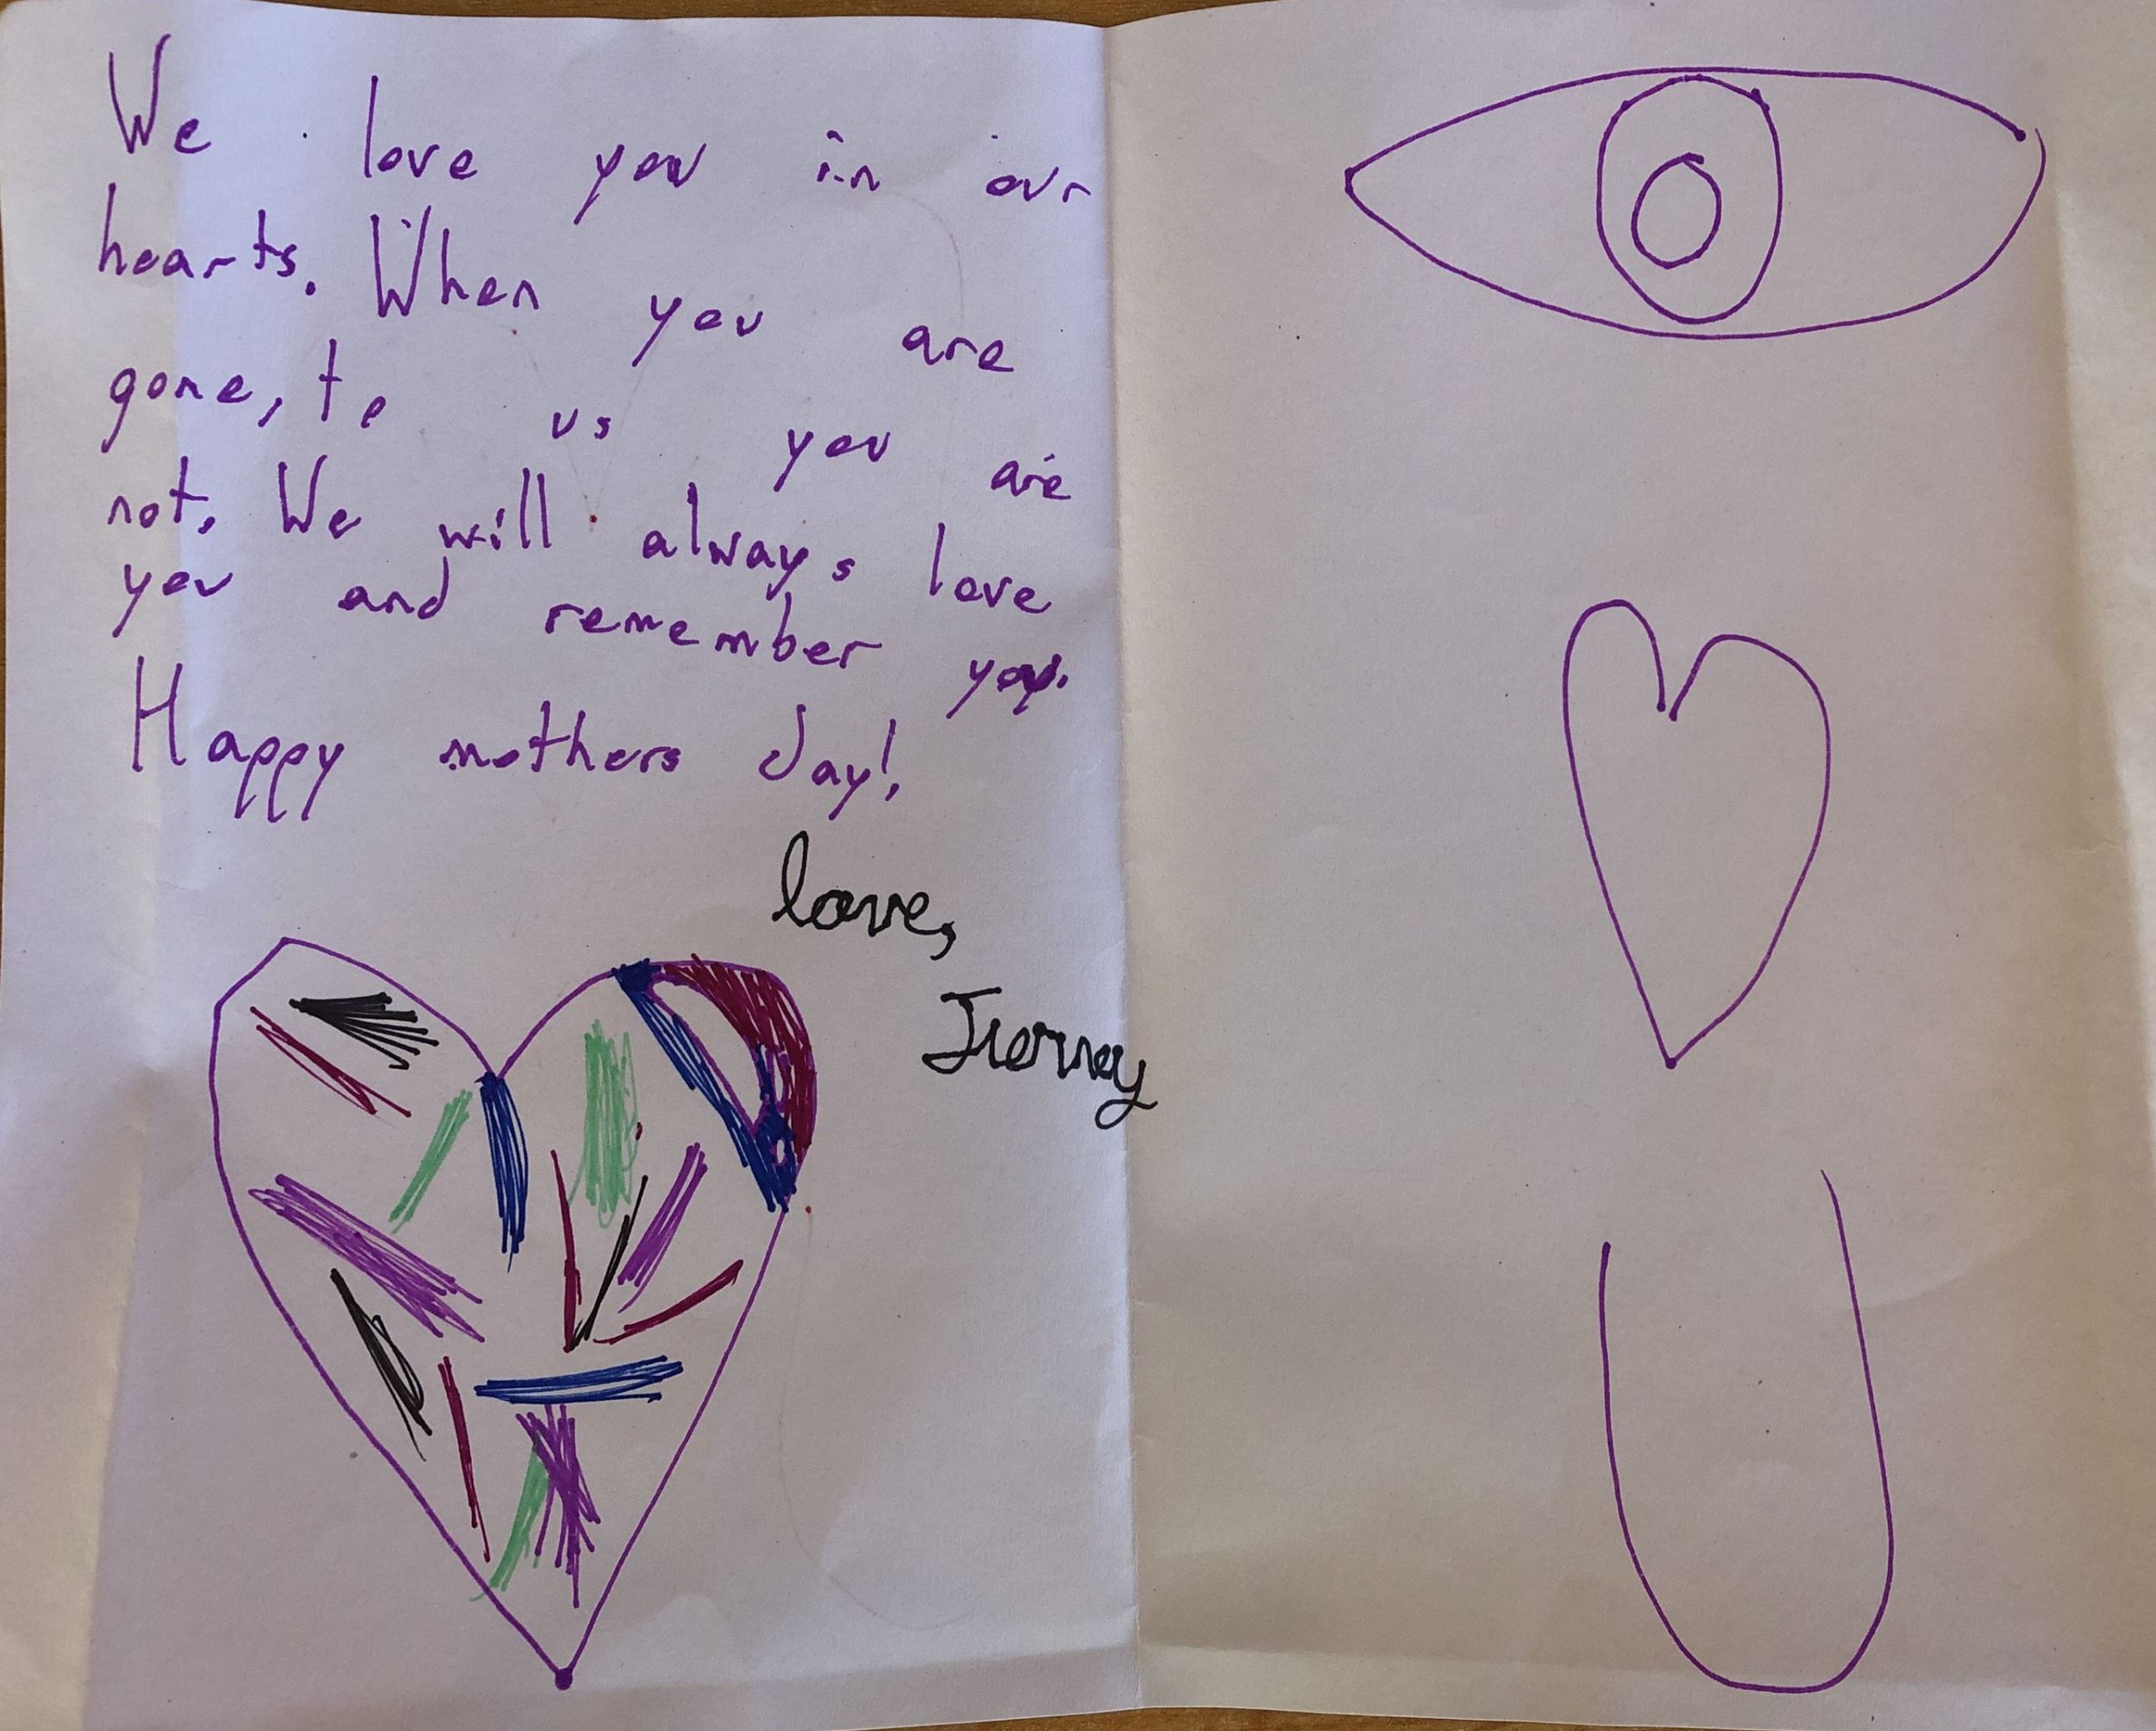 We love you in our
hearts. When you are
gone, to us you are
not. We will always love
you and remember you.
Happy mothers day!
love,
Tierney